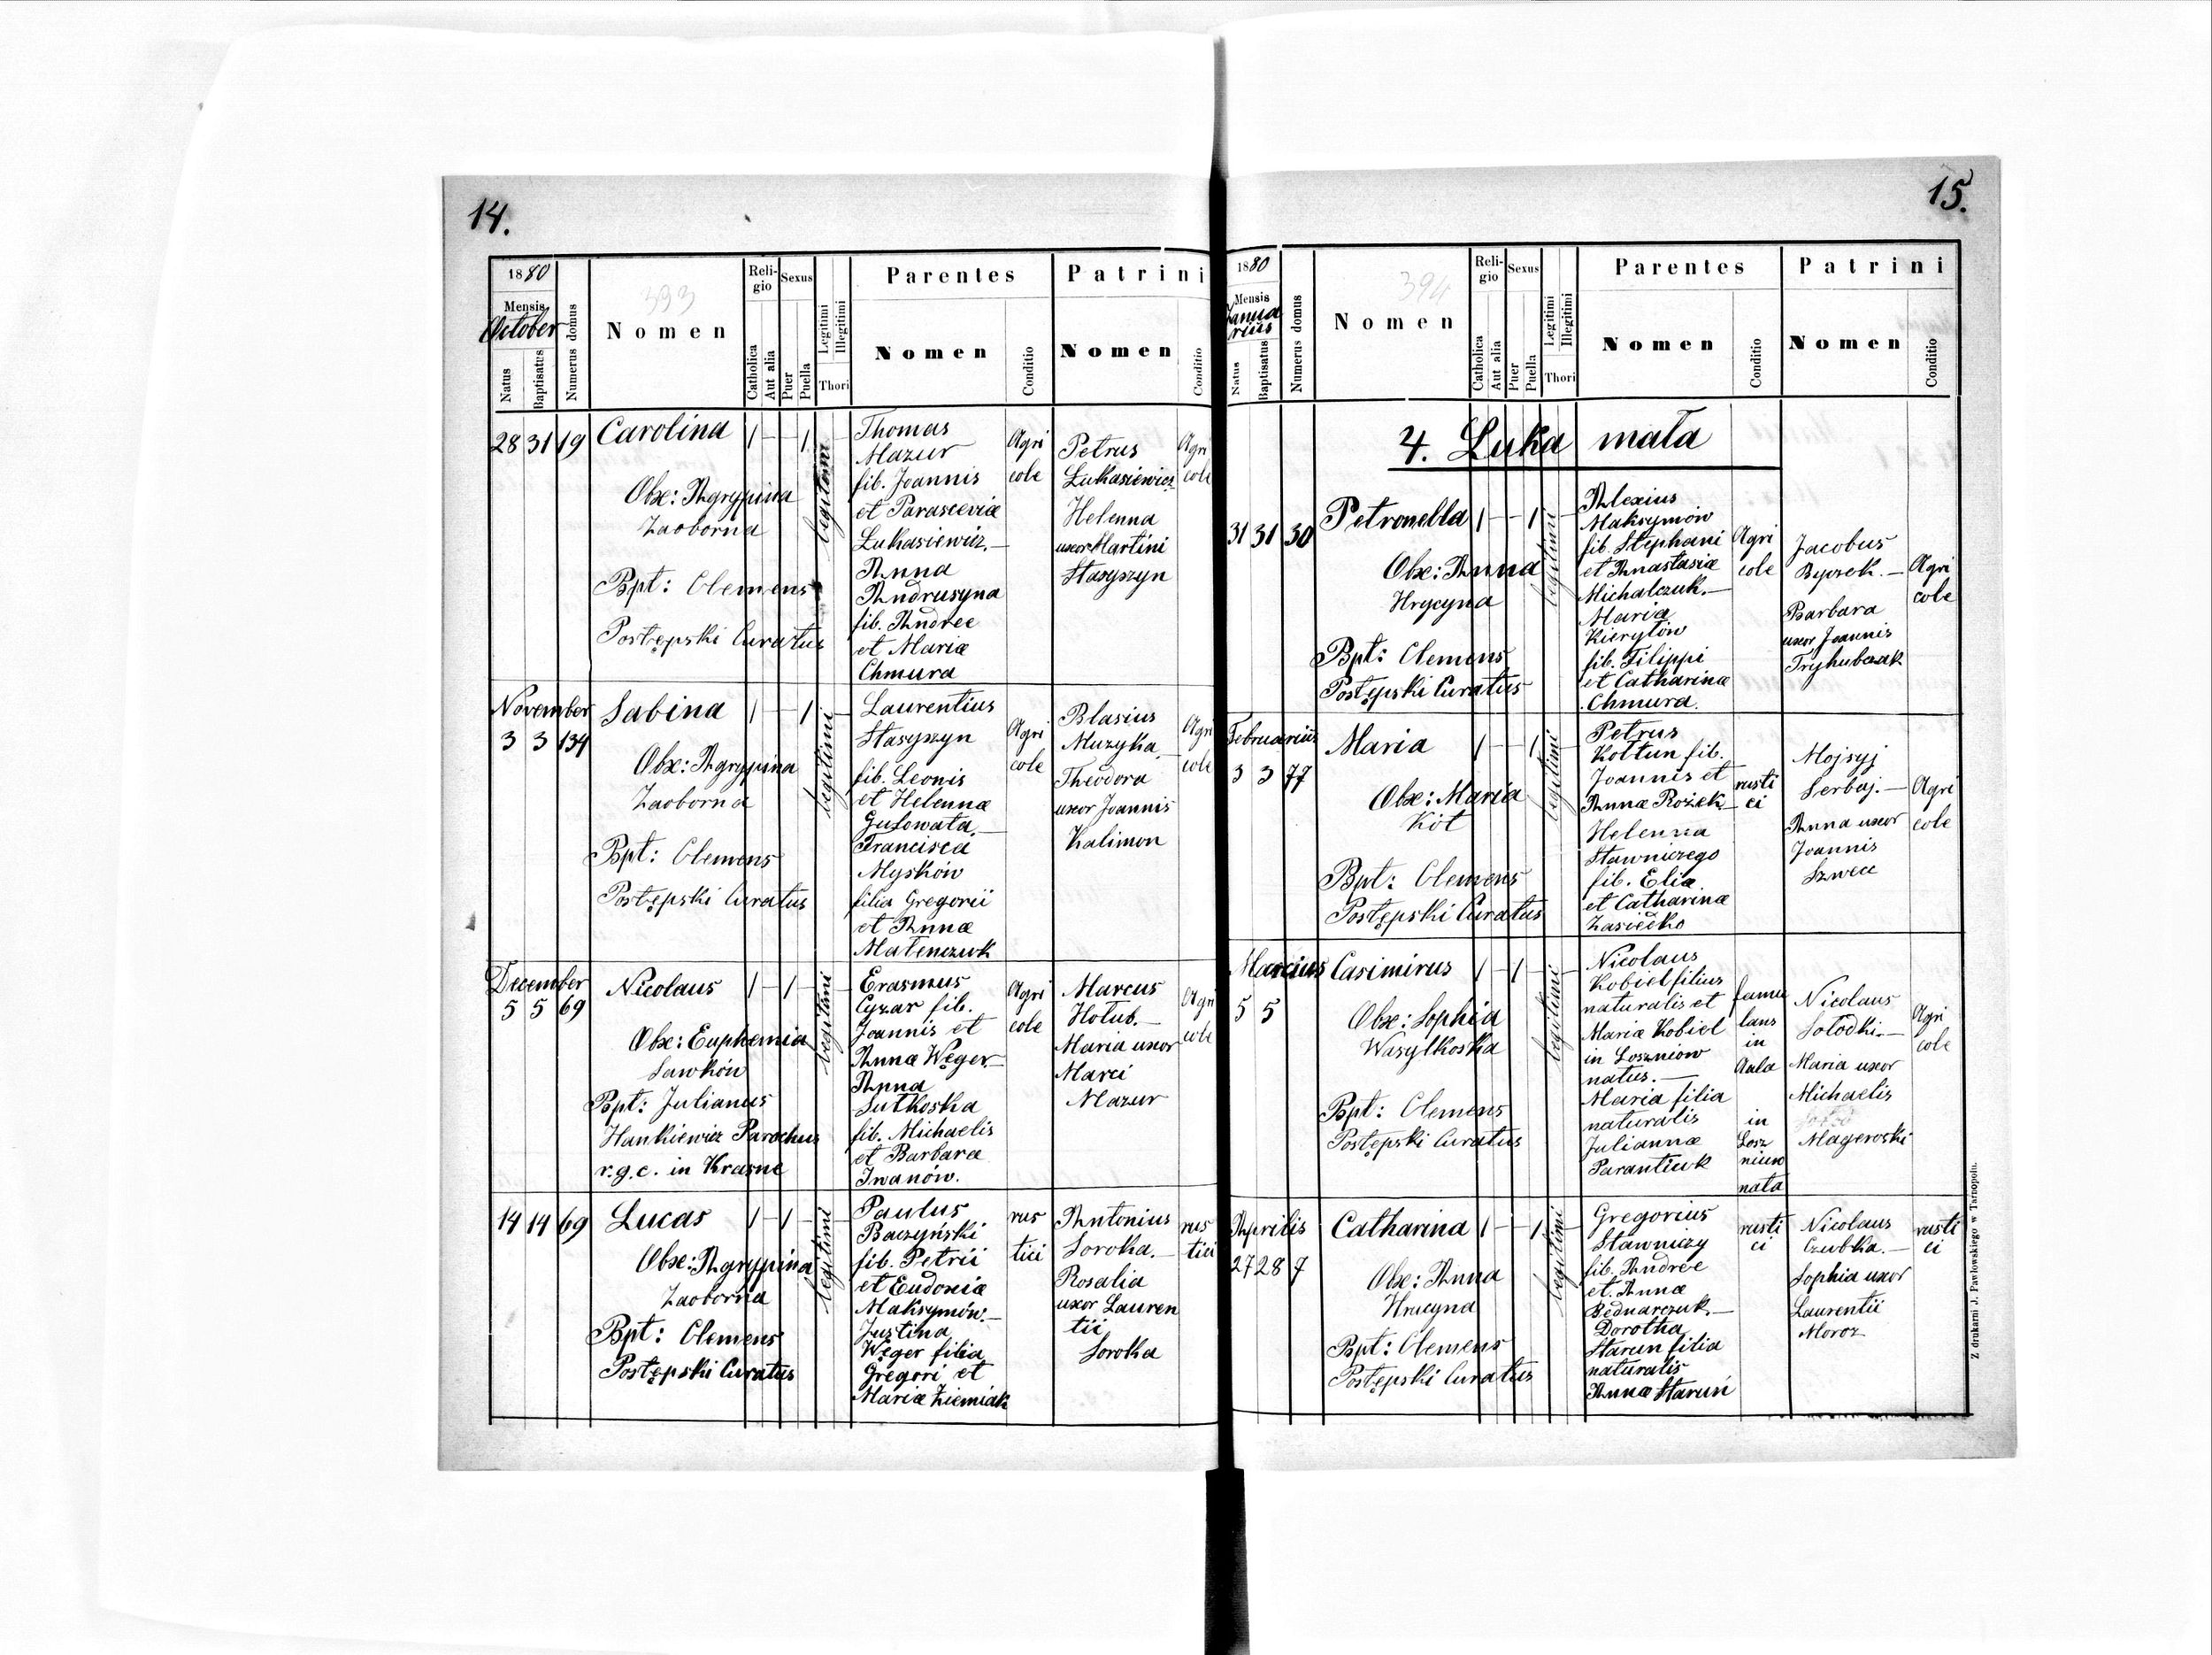 14.
1880
Mensis
October
Natus
Baptisatus
Numerus domus
393
Nomen
Religio
Catholica
Aut alia
Sexus
Puer
Puella
Legitimi
Illegitimi
Thori
Parentes
Nomen
Conditio
Patrini
Nomen
Conditio
28 31 19 Carolina 1 1
Obx: Agrypina
Zaoborna
Bpt: Clemens
Postępski Curatus
legitimi
Thomas
Mazur
fil. Joannis
et Parasceviæ
Lukasiewicz.—
Anna
Andrusyna
fil. Andree
et Mariæ
Chmura
Agri
cole
Petrus
Lukasiewicz
Helenna
uxor Martini
Stasyszyn
Agri
cole
November
3 3 134 Sabina 1 1
Obx: Agrypina
Zaoborna
Bpt: Clemens
Postępski Curatus
legitimi
Laurentius
Stasyszyn
fil. Leonis
et Helennæ
Gulowata.—
Francisca
Myskow
filia Gregorii
et Annæ
Matenczuk
Agri
cole
Blasius
Muzyka
Theodora
uxor Joannis
Kalimon
Agri
cole
December
5 5 69 Nicolaus 1 1
Obx: Euphemia
Sawków
Bpt: Julianus
Hankiewicz Parochus
r.g.c. in Krasne
legitimi
Erasmus
Cyzar fil.
Joannis et
Annæ Węger.—
Anna
Sutkoska
fil. Michaelis
et Barbara
Iwanów.
Agri
cole
Marcus
Hołub.—
Maria uxor
Marci
Mazur
Agri
cole
14 14 69 Lucas 1 1
Obx: Agrypina
Zaoborna
Bpt: Clemens
Postępski Curatus
legitimi
Paulus
Baczyński
fil. Petrii
et Eudoxiæ
Maksymów.—
Justina
Węger filia
Gregori et
Mariæ Ziemiak
rus
tici
Antonius
Soroka.—
Rosalia
uxor Lauren
tii
Soroka
rus
tici
15.
1880
Mensis
Janua
rius
Natus
Baptisatus
Numerus domus
394
Nomen
Religio
Catholica
Aut alia
Sexus
Puer
Puella
Legitimi
Illegitimi
Thori
Parentes
Nomen
Conditio
Patrini
Nomen
Conditio
4. Luka mała
31 31 30 Petronella 1 1
Obx: Anna
Hrycyna
Bpt: Clemens
Postępski Curatus
legitimi
Alexius
Maksymów
fil. Stephani
et Anastasiæ
Michalczuk.—
Maria
Kieryłów
fil. Filippi
et Catharinæ
Chmura.
Agri
cole
Jacobus
Byczek.—
Barbara
uxor Joannis
Tryhubczak
Agri
cole
Februarius
3 3 77 Maria 1 1
Obx: Maria
Kót
Bpt: Clemens
Postępski Curatus
legitimi
Petrus
Kołtun fil.
Joannis et
Annæ Rożek.—
Helenna
Stawniczego
fil. Eliæ
et Catharinæ
Zasiedko
rusti
ci
Mojsyj
Serbaj.—
Anna uxor
Joannis
Szwec
Agri
cole
Marcius
5 5 Casimirus 1 1
Obx: Sophia
Wasylkoska
Bpt: Clemens
Postępski Curatus
legitimi
Nicolaus
Kobiel filius
naturalis et
Mariæ Kobiel
in Łoszniow
natus.—
Maria filia
naturalis
Juliannæ
Parantiuk
famu
lans
in
Aula
in
Łosz
niow
nata
Nicolaus
Sołodki.—
Maria uxor
Michaelis
Mageroski
Agri
cole
Aprilis
27 28 7 Catharina 1 1
Obx: Anna
Hrycyna
Bpt: Clemens
Postępski Curatus
legitimi
Gregorius
Stawniczy
fil. Andree
et Annæ
Bednarczuk.—
Dorotha
Starun filia
naturalis
Annæ Staruń
rusti
ci
Nicolaus
Czubka.—
Sophia uxor
Laurentii
Moroz
rusti
ci
Z drukarni J. Pawłowskiego w Tarnopolu.